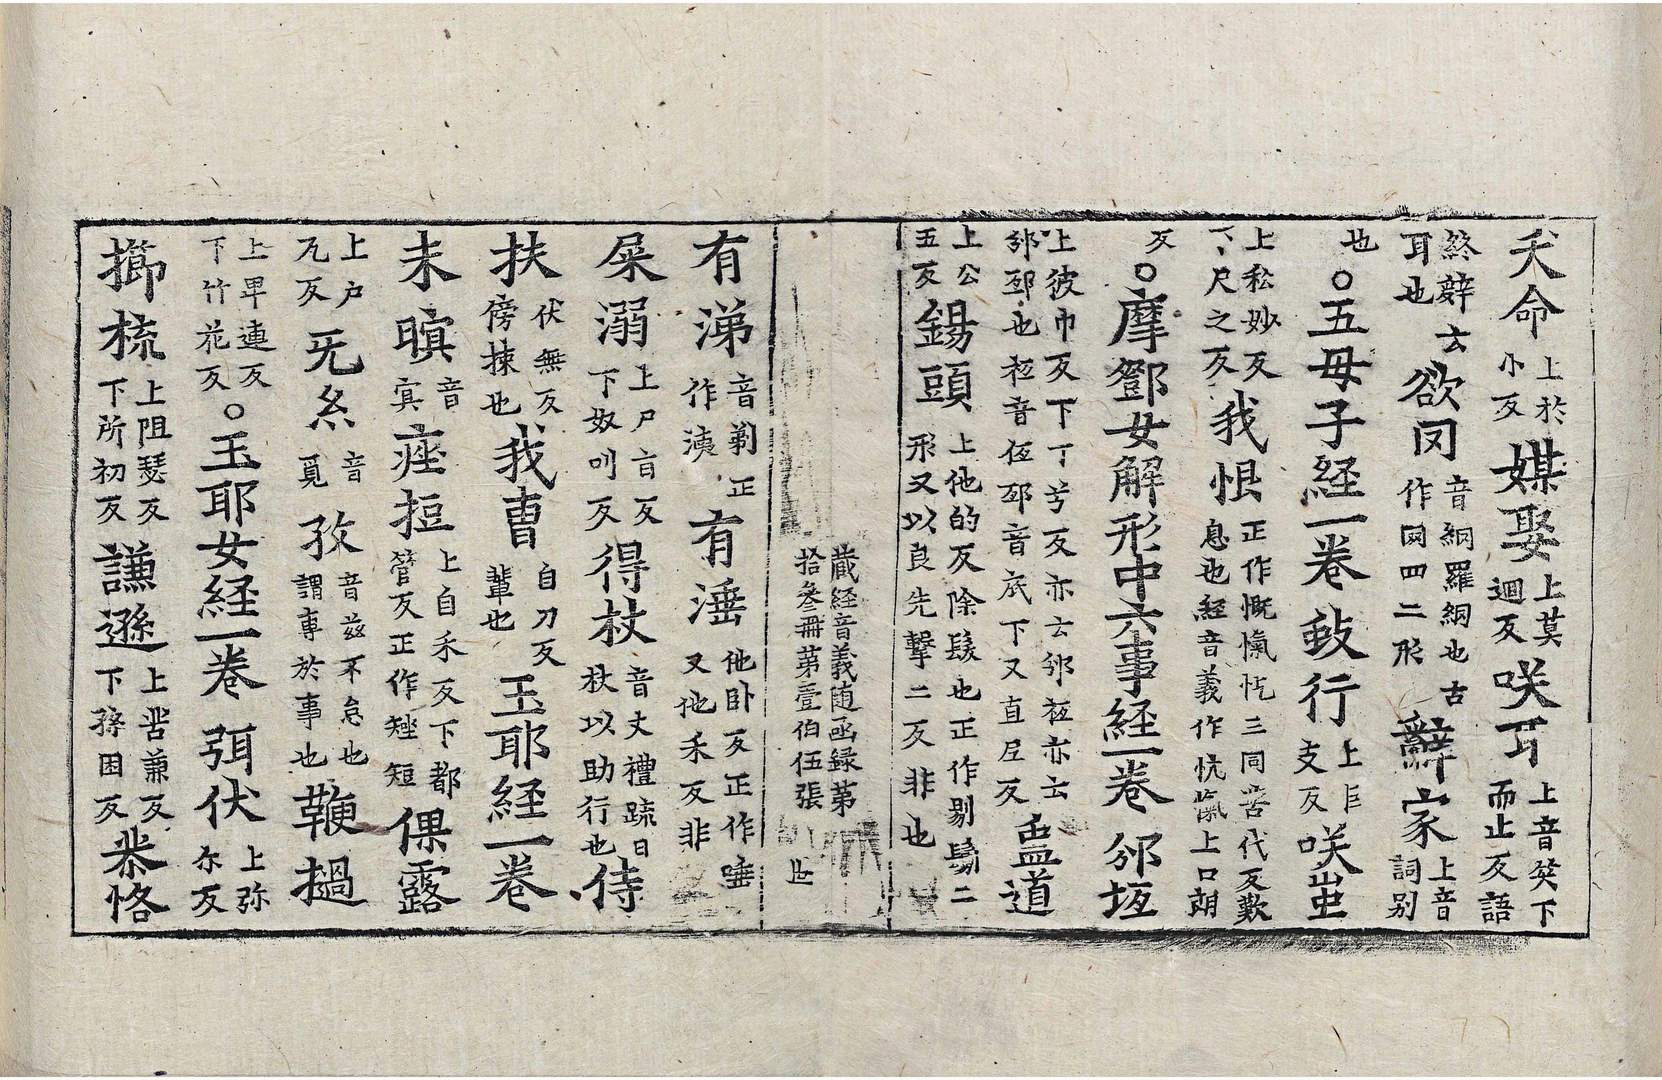 夭命上於小反媒娶上莫迴反咲耳上音笑下而止反語
終辝云耳也欲罔音網羅網也古作𦉪四二形辭家上音詞別
也○五母子経一卷蚑行上巨支反咲蚩
上私妙反下尺之反我恨正作慨愾忾三同苦代反歎息也経音義作忼愾上口朗
反○摩鄧女解形中六事経一卷邠坻
上彼巾反下丁兮反亦云邠衹亦云邠邳也衹音伍邳音底下又直尼反蛊道
上公五反鍚頭上他的反除髮也正作剔鬄二形又以良先擊二反非也
蔵経音義随函録第拾叄冊第壹伯伍張 世
有涕音剃正作洟有涶他卧反正作唾又他禾反非
屎溺上尸旨反下奴叫反得杖音丈禮䟽曰杖以助行也侍
扶伏無反傍揀也我曺自刀反輩也玉耶経一卷
未暝音㝠痤拒上自禾反下都管反正作矬短倮露
上户瓦反旡糸音覓孜音兹不怠也謂事於事也鞭撾
上卑連反下竹花反○玉耶女経一卷弭伏上弥尒反
擳梳上阻瑟反下所初反謙遜上苦兼反下孫困反恭恪